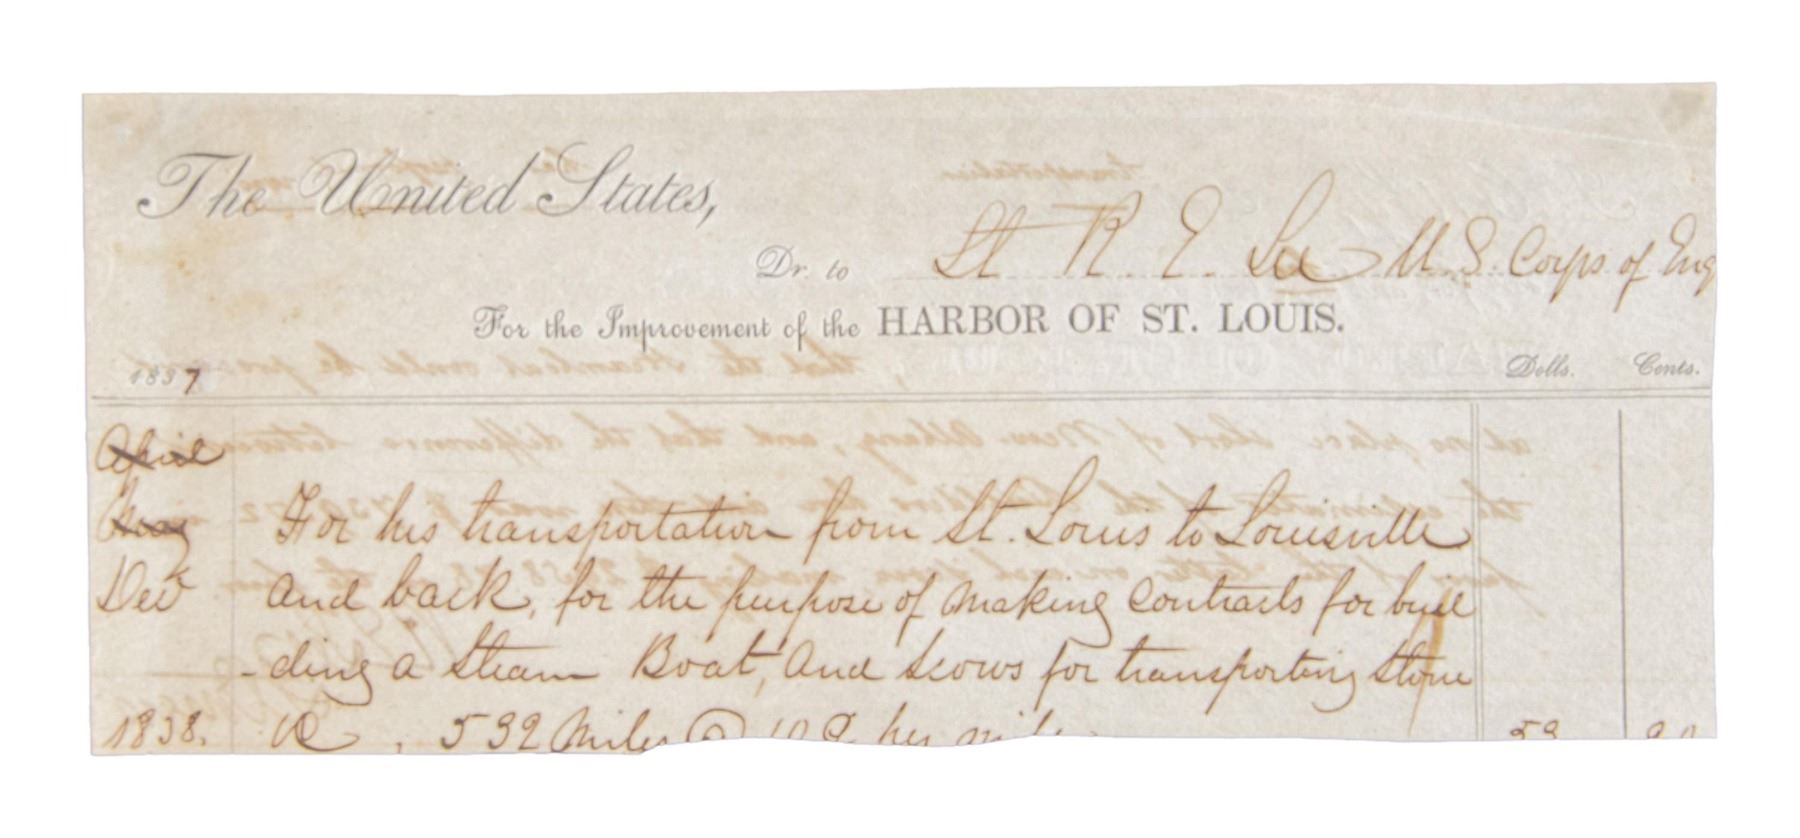 The United States,
Dr. to Lt R. E. Lee U. S. Corps of Eng
For the Improvement of the HARBOR OF ST. LOUIS.
1837 Dolls. Cents.
April
May For his transportation from St. Louis to Louisville
Dec and back, for the purpose of making contracts for buil
-ding a Steam Boat, and Scows for transporting Stone
1838. 532 Miles @ 10 per mile 53 20